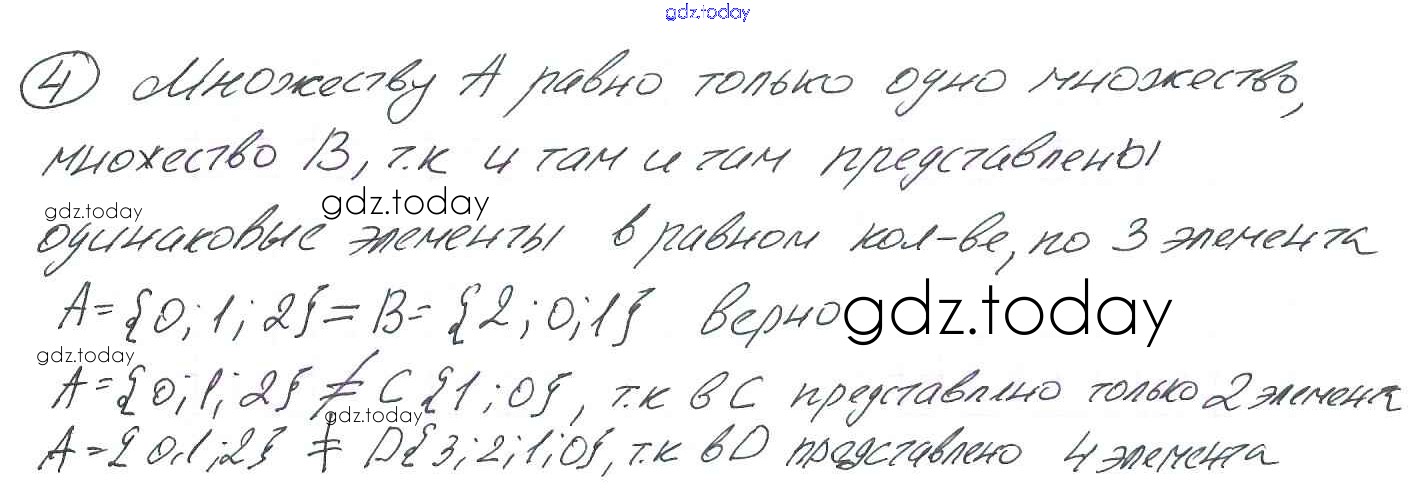 gdz.today
④ Множеству A равно только одно множество,
множество B, т.к и там и там представлены
gdz.today gdz.today
одинаковые элементы в равном кол-ве, по 3 элемента
A={0;1;2}=B={2;0;1} верно gdz.today
gdz.today
A={0;1;2} ≠ C{1;0}, т.к в C представлено только 2 элемента
gdz.today
A={0;1;2} ≠ D{3;2;1;0}, т.к в D представлено 4 элемента